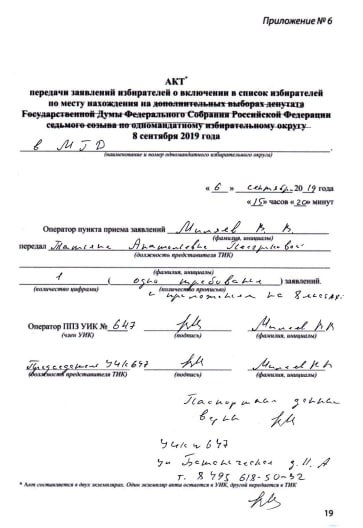 Приложение № 6
АКТ*
передачи заявлений избирателей о включении в список избирателей
по месту нахождения на дополнительных выборах депутата
Государственной Думы Федерального Собрания Российской Федерации
седьмого созыва по одномандатному избирательному округу
8 сентября 2019 года
в МГД
(наименование и номер одномандатного избирательного округа)
« 6 » сентября 2019 года
« 15 » часов « 20 » минут
Оператор пункта приема заявлений
(фамилия, инициалы)
передал Татьяне Анатольевне
(должность представителя ТИК)
(фамилия, инициалы)
1 ( одно требование ) заявлений.
(количество цифрами) (количество прописью)
с приложением на 8 листах
Оператор ППЗ УИК № 647
(член УИК) (подпись) (фамилия, инициалы)
Председатель УИК 647
(должность представителя ТИК) (подпись) (фамилия, инициалы)
Паспортные данные
верны
УИК № 647
ул Ботаническая д. 11 А
т. 8 495 618-50-32
* Акт составляется в двух экземплярах. Один экземпляр акта остается в УИК, другой передается в ТИК
19